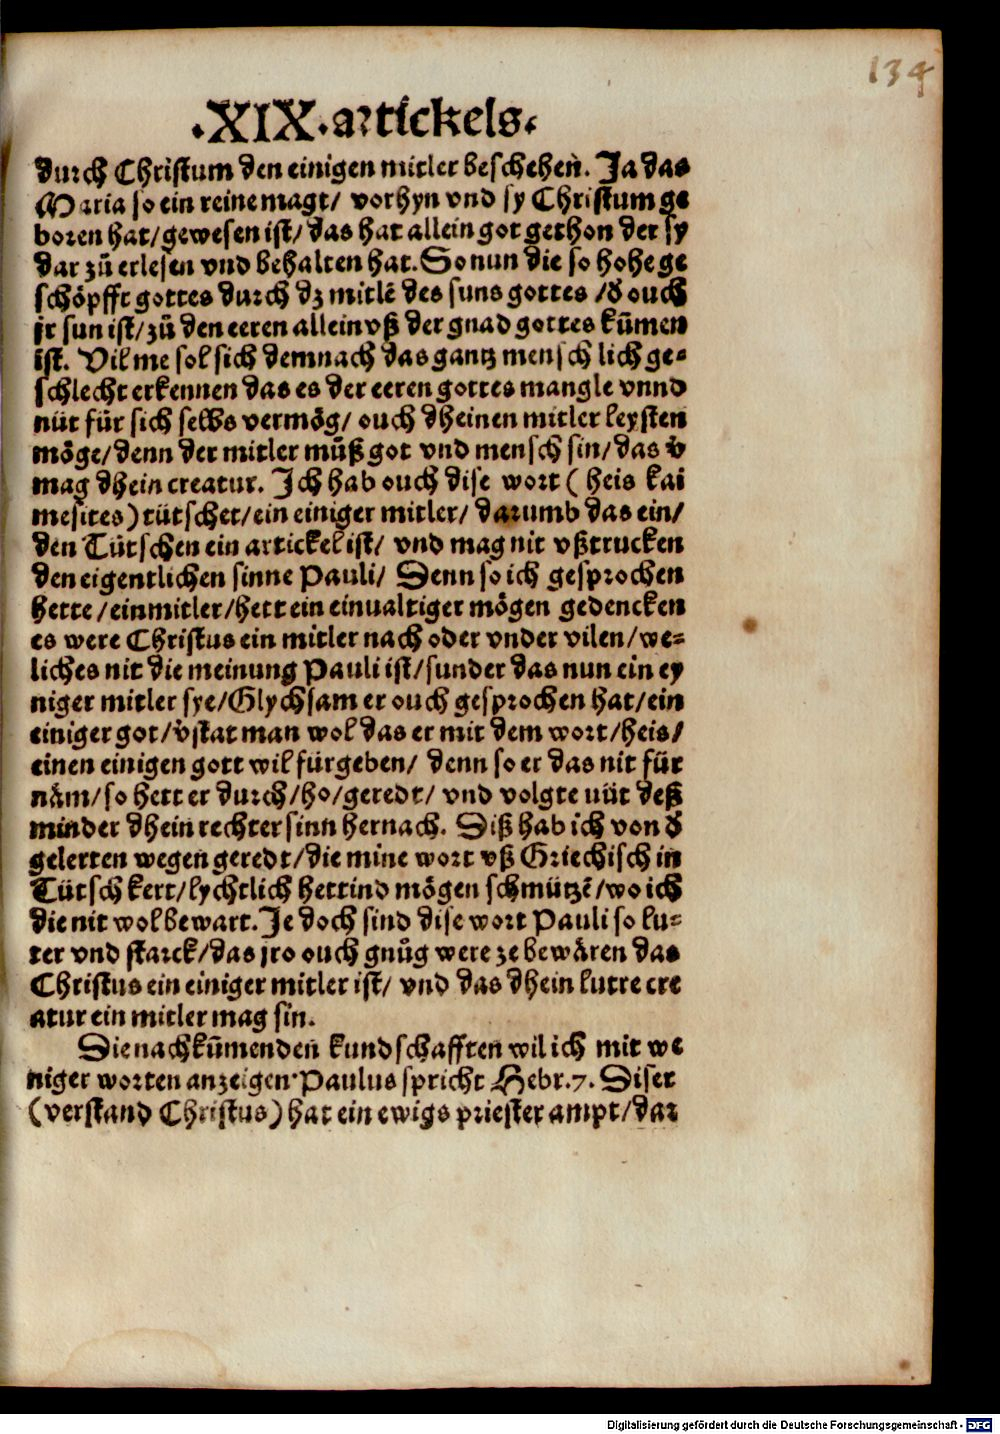 134
.XIX.artickels.
durch Christum den einigen mitler beschehen. Ja das
Maria so ein reine magt/ vorhyn vnd sy Christum ge
boren hat/gewesen ist/das hat allein got gethon der sy
dar zuͦ erlesen vnd behalten hat. So nun die so hohe ge
schöpfft gottes durch dz mitlē des suns gottes /d̕ ouch
jr sun ist/zuͦ den eeren allein vß der gnad gottes kum̄en
ist. Vil me sol sich demnach das gantz menschlich ge-
schlecht erkennen das es der eeren gottes mangle vnnd
nüt für sich selbs vermög/ ouch dheinen mitler leysten
möge/denn der mitler muͦß got vnd mensch sin/das v̕
mag dhein creatur. Ich hab ouch dise wort ( heis kai
mesites) tütschet/ein einiger mitler/ darumb das ein/
den Tütschen ein artickel ist/ vnd mag nit vßtrucken
den eigentlichen sinne Pauli/ Denn so ich gesprochen
hette /ein mitler/hett ein einualtiger mögen gedencken
es were Christus ein mitler nach oder vnder vilen/we-
liches nit die meinung Pauli ist/sunder das nun ein ey
niger mitler sye/Glychsam er ouch gesprochen hat/ein
einiger got/v̕stat man wol das er mit dem wort/heis/
einen einigen gott wil fürgeben/ denn so er das nit für
näm/so hett er durch/ho/geredt/ vnd volgte nüt deß
minder dhein rechter sinn hernach. Diß hab ich von d̕
gelerten wegen geredt/die mine wort vß Griechisch in
Tütsch kert/lychtlich hettind mögen schmützē/wo ich
die nit wol bewart. Je doch sind dise wort Pauli so lu-
ter vnd starck/das jro ouch gnuͦg were ze bewären das
Christus ein einiger mitler ist/ vnd das dhein lutre cre
atur ein mitler mag sin.
Die nachkum̄enden kundschafften wil ich mit we
niger worten anzeigen·Paulus spricht Hebr.7. Diser
(verstand Christus) hat ein ewigs priester ampt/dar
Digitalisierung gefördert durch die Deutsche Forschungsgemeinschaft - DFG